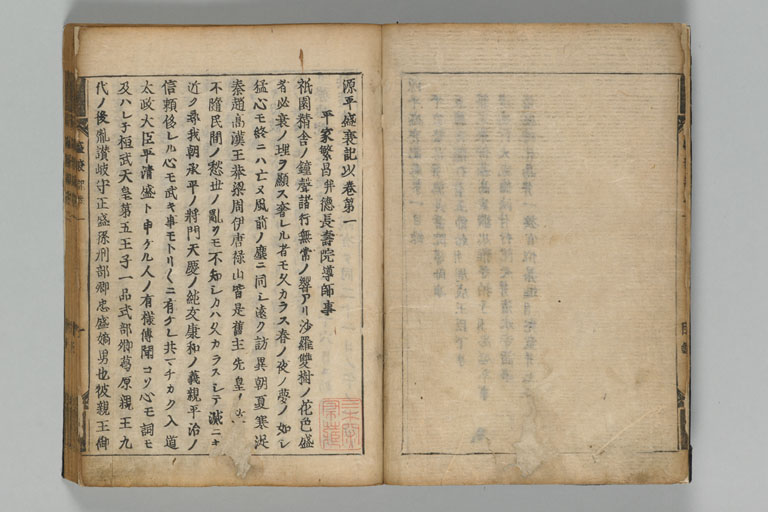 源平盛衰記以巻第一
平家繁昌并德長壽院導師事
祇園精舍ノ鐘聲諸行無常ノ響アリ沙羅雙樹ノ花色盛
者必衰ノ理ヲ顯ス奢レル者モ久カラス春ノ夜ノ夢ノ如シ
猛心モ終ニハ亡ヌ風前ノ塵ニ同シ遠ク訪異朝夏寒浞
秦趙高漢王莽梁周伊唐祿山皆是舊主先皇ノ
不隨民間ノ愁世ノ亂ヲモ不知シカハ久カラスシテ滅ニキ
近ク尋我朝承平ノ將門天慶ノ純友康和ノ義親平治ノ
信賴侈レル心モ武キ事モトリ〱ニ有ケレ共マチカク入道
太政大臣平清盛ト申ケル人ノ有樣傳聞コソ心モ詞モ
及ハレ子桓武天皇第五王子一品式部卿葛原親王九
代ノ後胤讃岐守正盛孫刑部卿忠盛嫡男也彼親王御